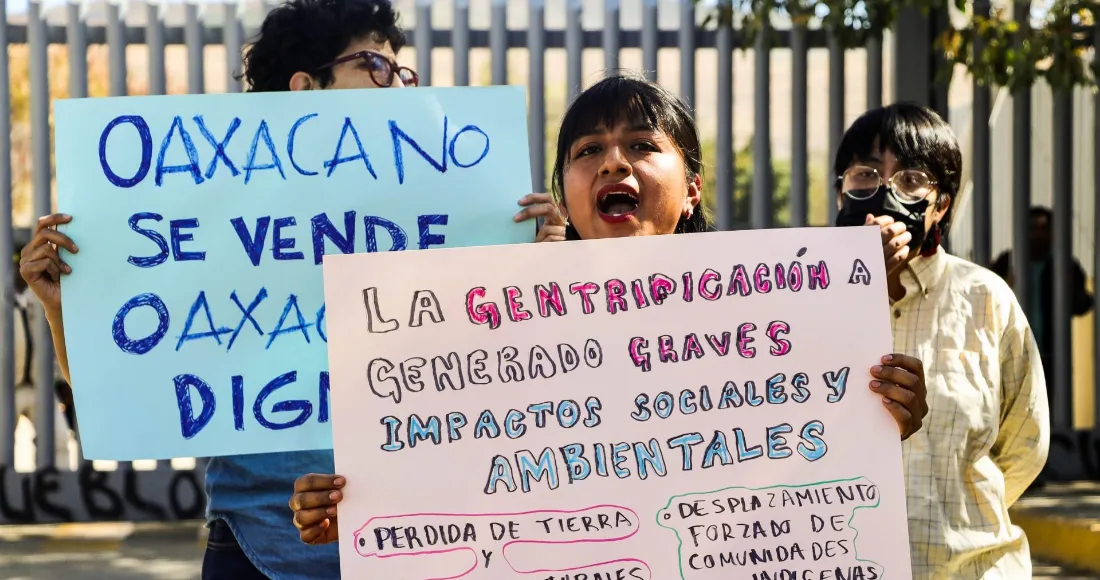 OAXACA NO
SE VENDE
OAXAC
DIG
LA GENTRIFICACIÓN A
GENERADO GRAVES
IMPACTOS SOCIALES Y
AMBIENTALES
• PERDIDA DE TIERRA
Y
• DESPLAZAMIENTO
FORZADO DE
COMUNIDADES
INDIGENAS